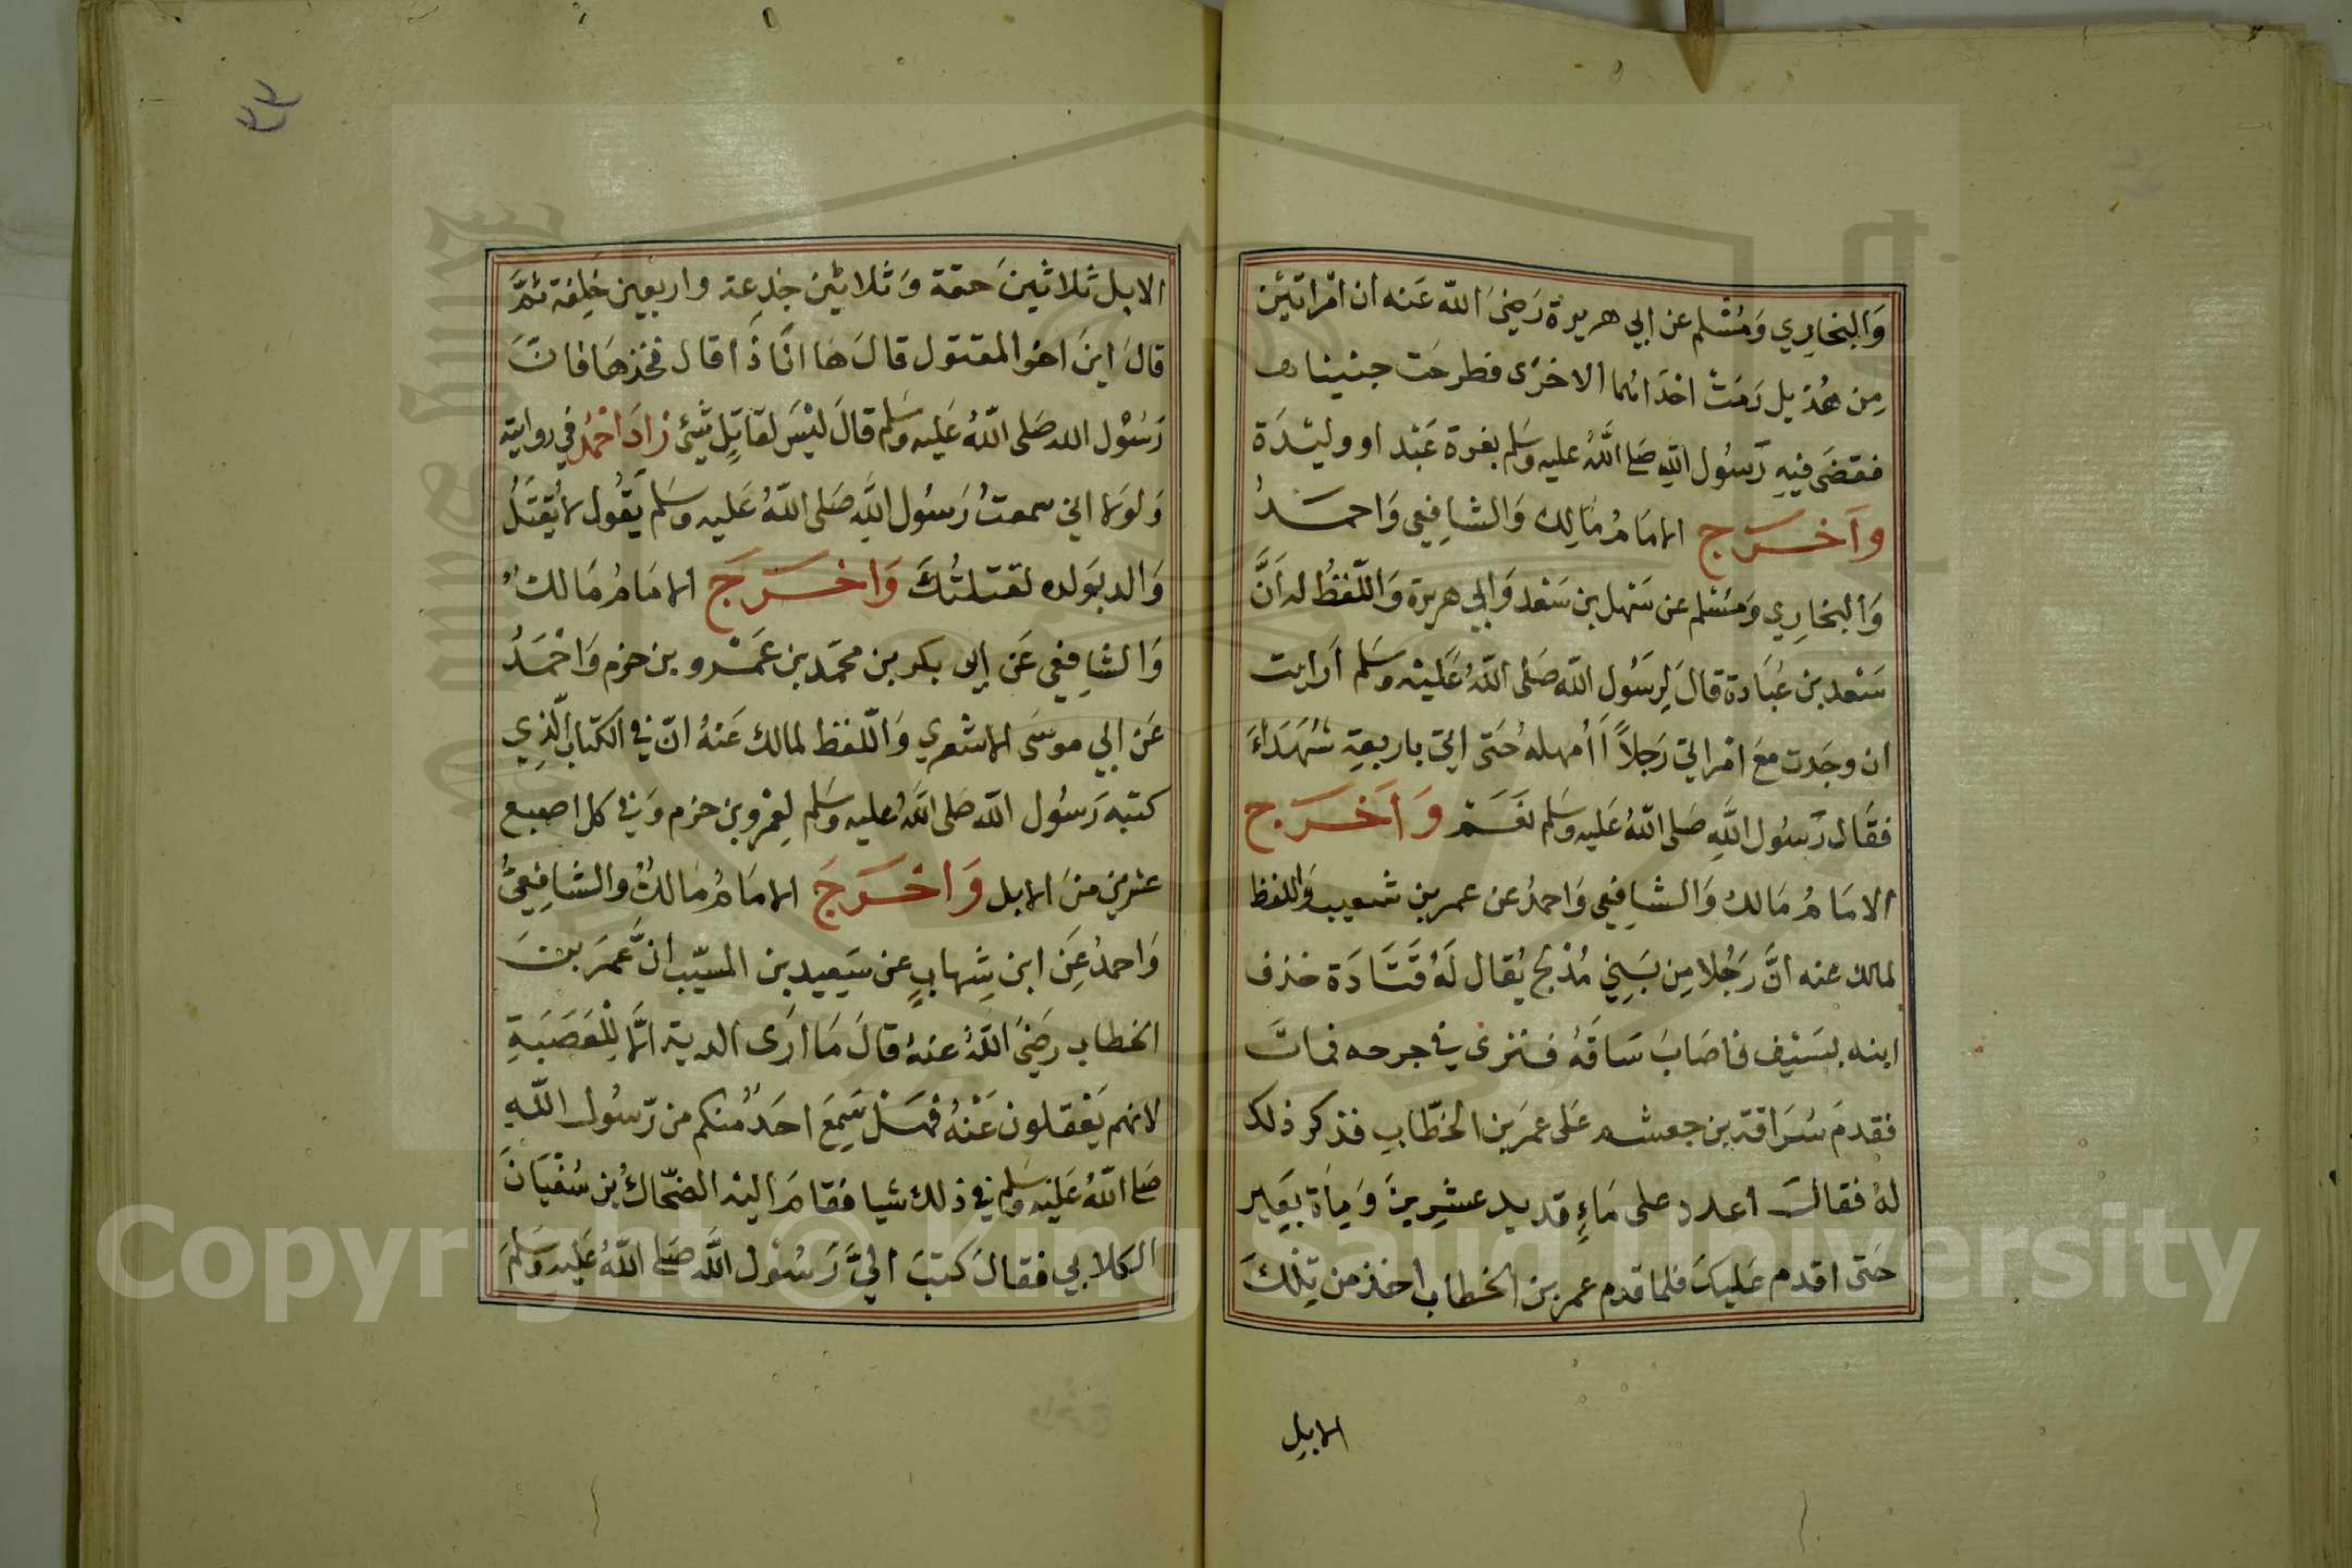 وَالبخاري وَمُسْلم عن ابي هريرة رَضِيَ اللّه عَنه ان امْراتَيْن
مِن هُذيل رَمَتْ احْدَاهُما الاخرَى فطرحَت جنينا
فقضَى فيهِ رَسُول اللّهِ صَلى اللَّهُ عليه وسَلم بغرة عَبْد او وليْدَة
وَاَخـرَج الامَامُ مَالِك وَالشافِعِي وَاحمَدُ
وَالبخارِي وَمسْلم عن سَهْل بن سَعْد وَابي هريرة وَاللّفظُ له اَنَّ
سَعْد بن عُبَادة قالَ لِرسَوُلِ اللّه صَلى اللّهُ عَليْه وسَلم اَرايت
ان وجَدت مَعَ امْراتي رَجلاً أَأُمهله حَتى اتي باربعةِ شُهَدَاءَ
فقال رَسُول اللَّهِ صَلى اللّهُ عَليه وسَلم نعَـم وَاَخـرَج
الامَامُ مَالك وَالشافِعِي وَاحمدُ عن عمر بن شعيب واللفظ
لمالك عنه انَّ رَجُلا مِن بَنِي مُدْلج يُقال لَهُ قَتَادَة خذف
ابنه بسَيْف فاصَابَ سَاقَهُ فـنزى في جرحه فماتَ
فقدمَ سُرَاقة بن جعشم عَلى عمَر بن الخطّابِ فذكر ذلك
لهُ فقالَ اعدد على مَاءِ قديد عشِرِينَ وَمِأة بَعِير
حَتى اقدم عَليكَ فلما قدم عمر بن الخطاب اخذ من تِلْكَ
الابلِ
الابل ثلاثينَ حقة وَثلاثيْنَ جذعة واربعين خَلِفة ثمَّ
قالَ اينَ اخو المقتول قالَ هَا انَا ذَا قال فخذهَا فانَّ
رَسُوْل الله صَلى اللّهُ عَليه وسَلم قالَ ليْسَ لقاتِلٍ شئ زادَ احْمُد في رواية
وَلولا اني سمعتُ رَسُول اللَّهِ صَلى اللّهُ عَليه وسَلم يَقُول لا يُقْتَلُ
وَالد بوَلده لقتلتُكَ وَاخـرَجَ الامَامُ مَالكُ
وَالشافِعي عَن ابى بكر بن محمّد بن عَمْرو بن حزم وَاحْمَدُ
عَن ابي موسَى الاشعري وَاللّفظ لمالك عَنْهُ انّ في الكتاب الّذِي
كتبه رَسُول اللّه صَلى اللَّهُ عليه وسَلم لِعَمْرو بن حزم وَفي كل اصبع
عشر من الابل وَاخـرَجَ الامَامُ مَالكٌ والشافِعِيُّ
وَاحمدُ عَنِ ابن شِهابٍ عن سَعِيد بن المسيّب انَّ عمَرَ بنَ
الخطاب رَضيَ اللّهُ عنهُ قالَ مَا ارَى الدية الَّا لِلْعَصَبَةِ
لانهم يَعْقلون عَنْهُ فهَـلْ سَمِعَ احَدٌ منكم من رّسُول اللّهِ
صَلى اللّهُ عَليْه وسَلم في ذلك شيا فقامَ اليْه الضّحّاكُ بن سُفْيَانَ
الكلابي فقالَ كتبَ اليَّ رَسُوْل اللَّهِ صَلى اللّهُ عَليْه وسَلمَ
Copyright © King Saud University